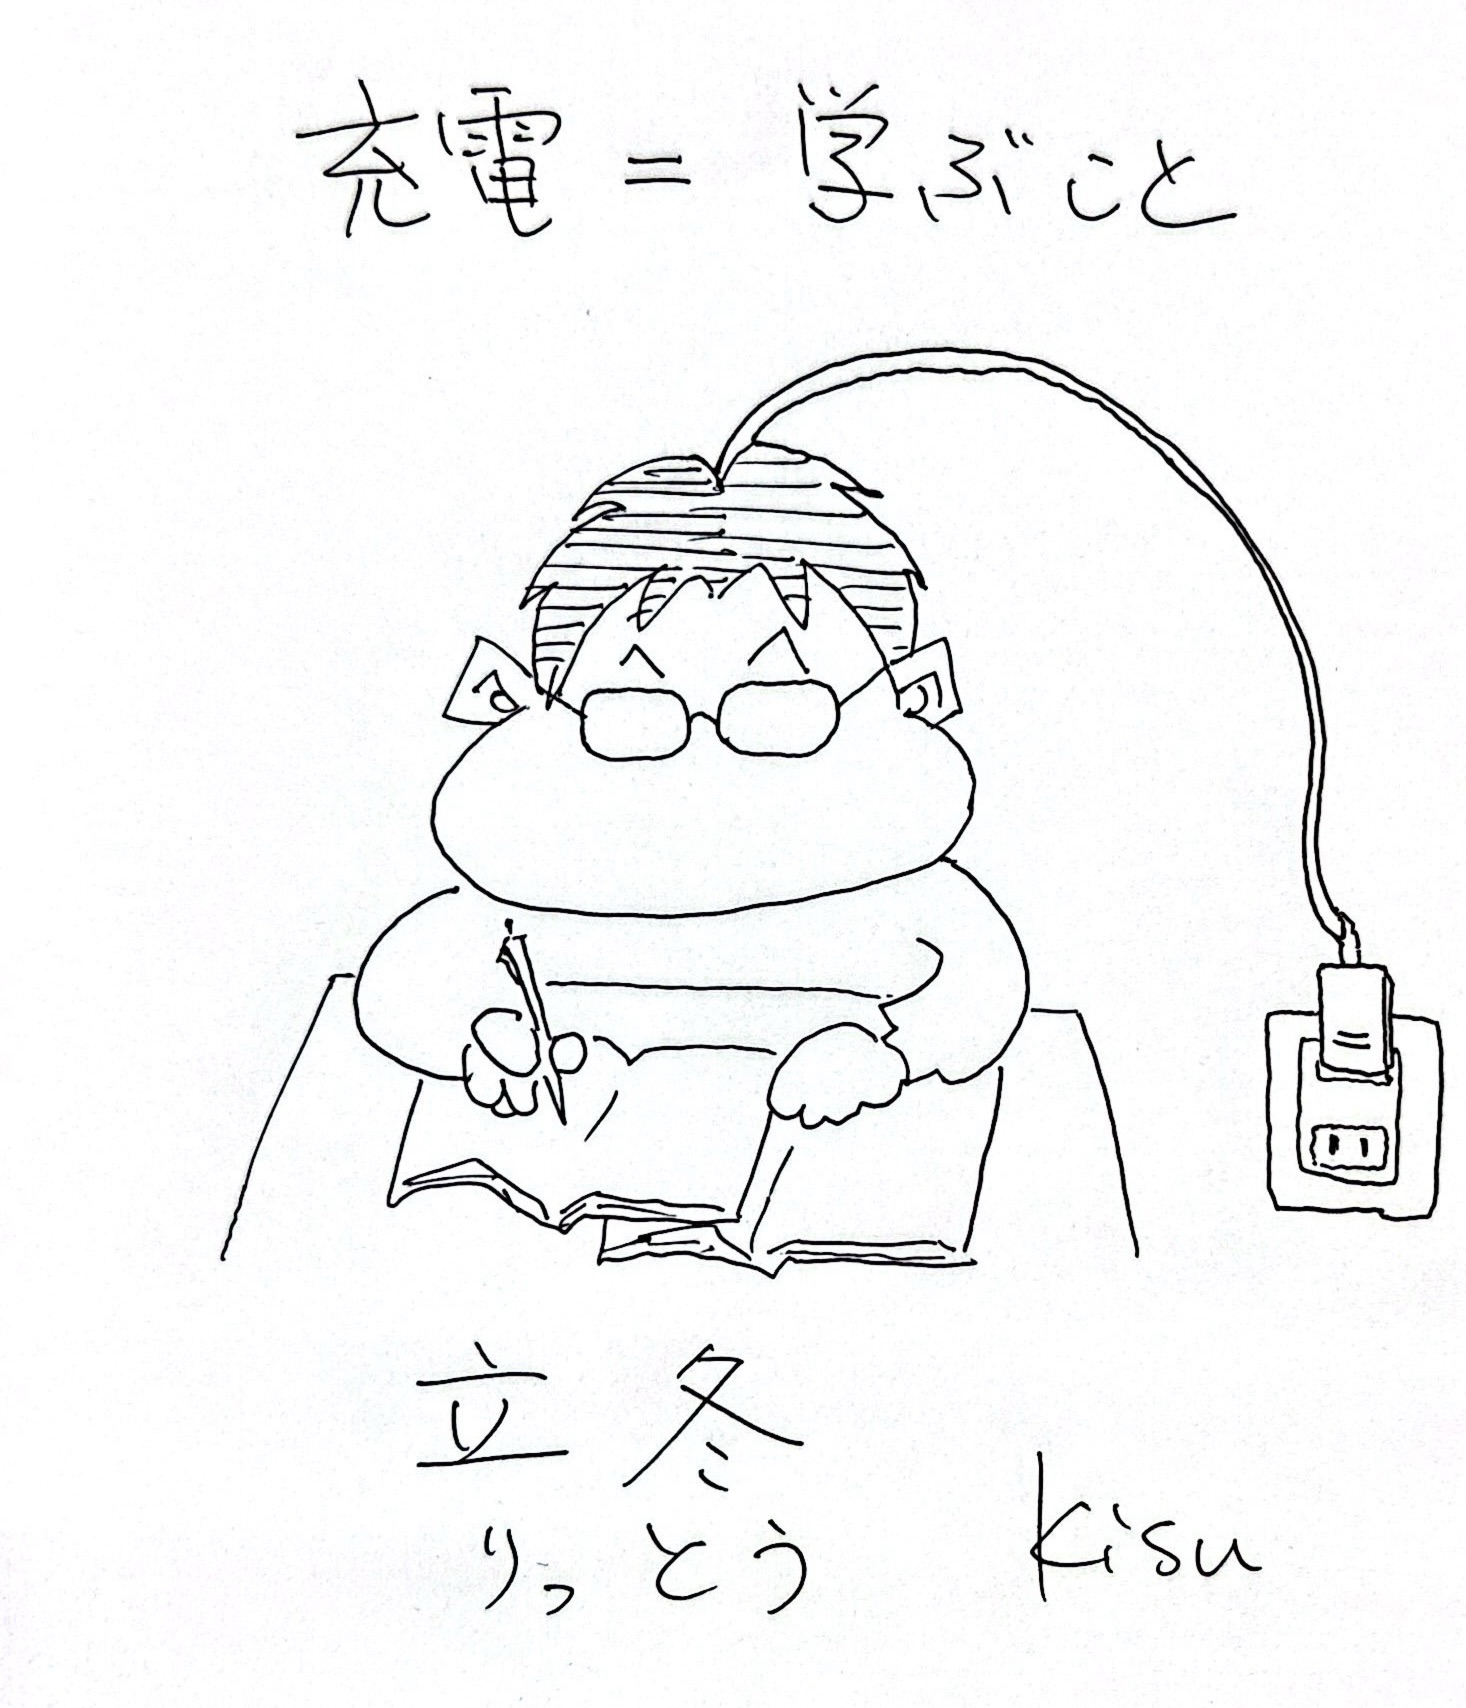 充電＝学ぶこと
立冬
りっとう
Kisu